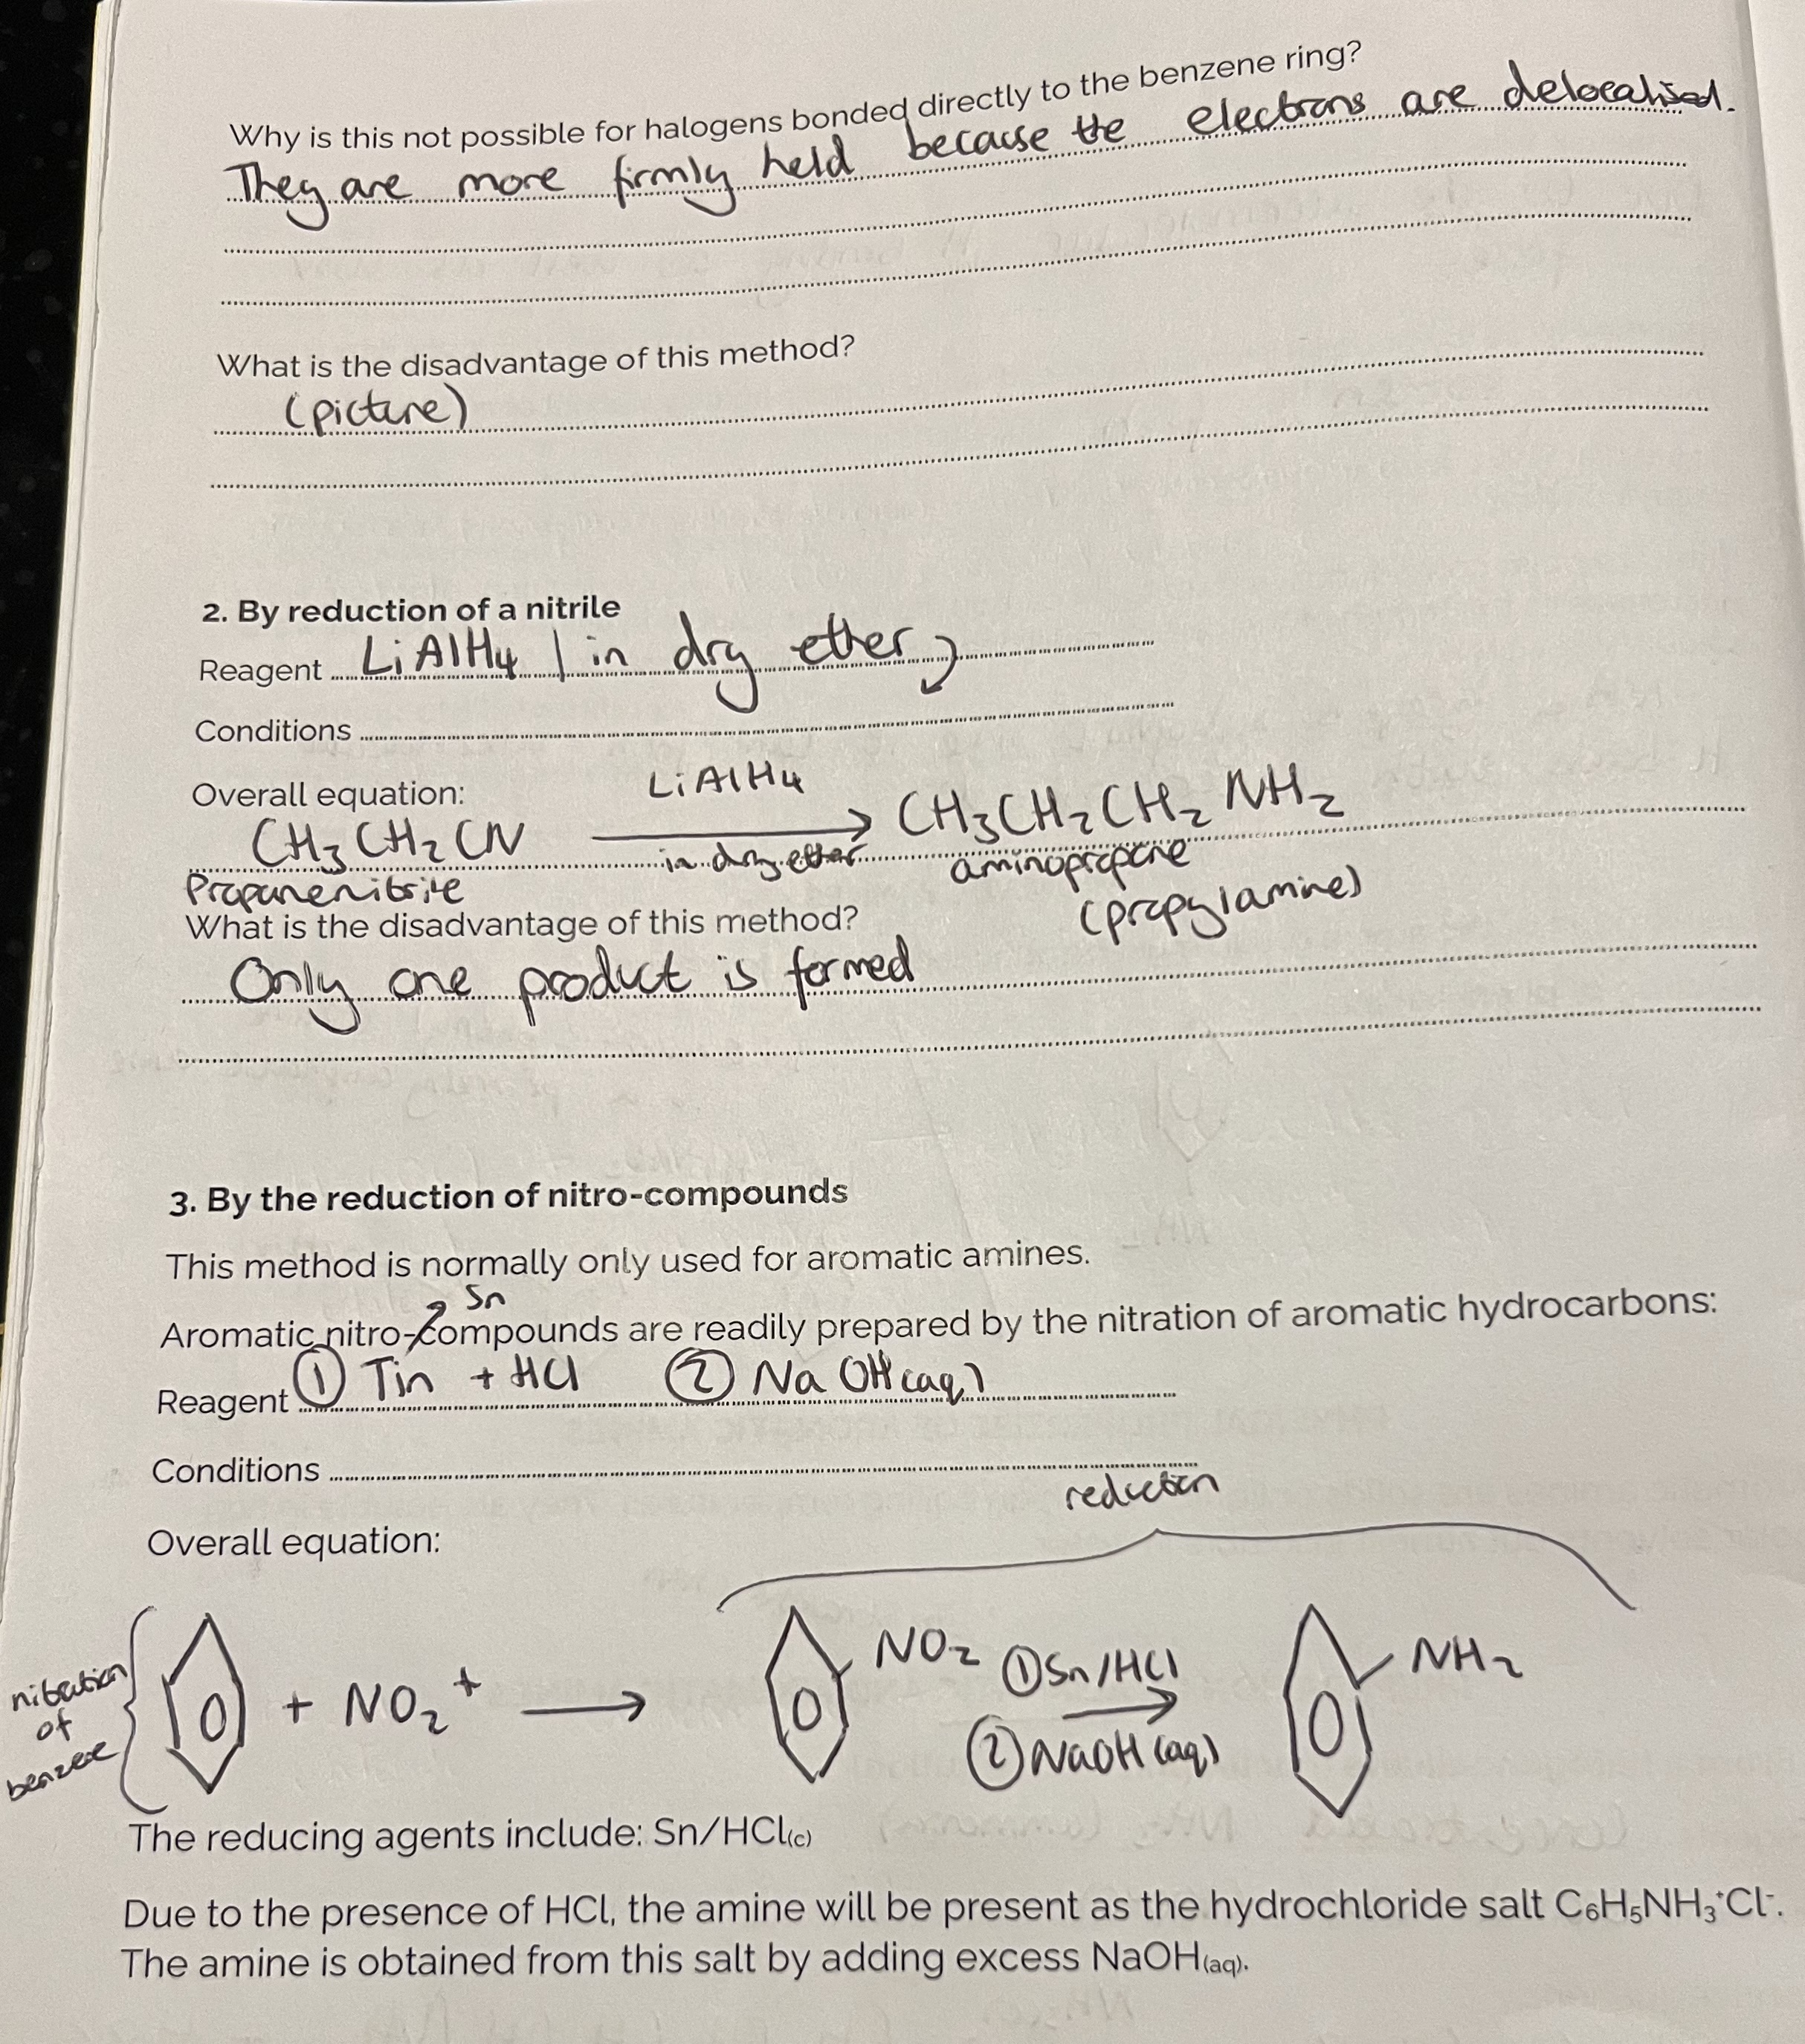 Why is this not possible for halogens bonded directly to the benzene ring?
They are more firmly held because the electrons are delocalised.
What is the disadvantage of this method?
(picture)
2. By reduction of a nitrile
Reagent LiAlH₄ | in dry ether
Conditions
Overall equation:
LiAlH₄
CH₃CH₂CN → CH₃CH₂CH₂NH₂
in dry ether
Propanenitrile aminopropane
(propylamine)
What is the disadvantage of this method?
Only one product is formed
3. By the reduction of nitro-compounds
This method is normally only used for aromatic amines.
Sn
Aromatic nitro-compounds are readily prepared by the nitration of aromatic hydrocarbons:
Reagent ① Tin + HCl ② NaOH(aq)
Conditions
reduction
Overall equation:
nitration of benzene
+ NO₂⁺ → NO₂ ① Sn/HCl → NH₂
② NaOH(aq)
The reducing agents include: Sn/HCl(c)
Due to the presence of HCl, the amine will be present as the hydrochloride salt C₆H₅NH₃⁺Cl⁻.
The amine is obtained from this salt by adding excess NaOH(aq).